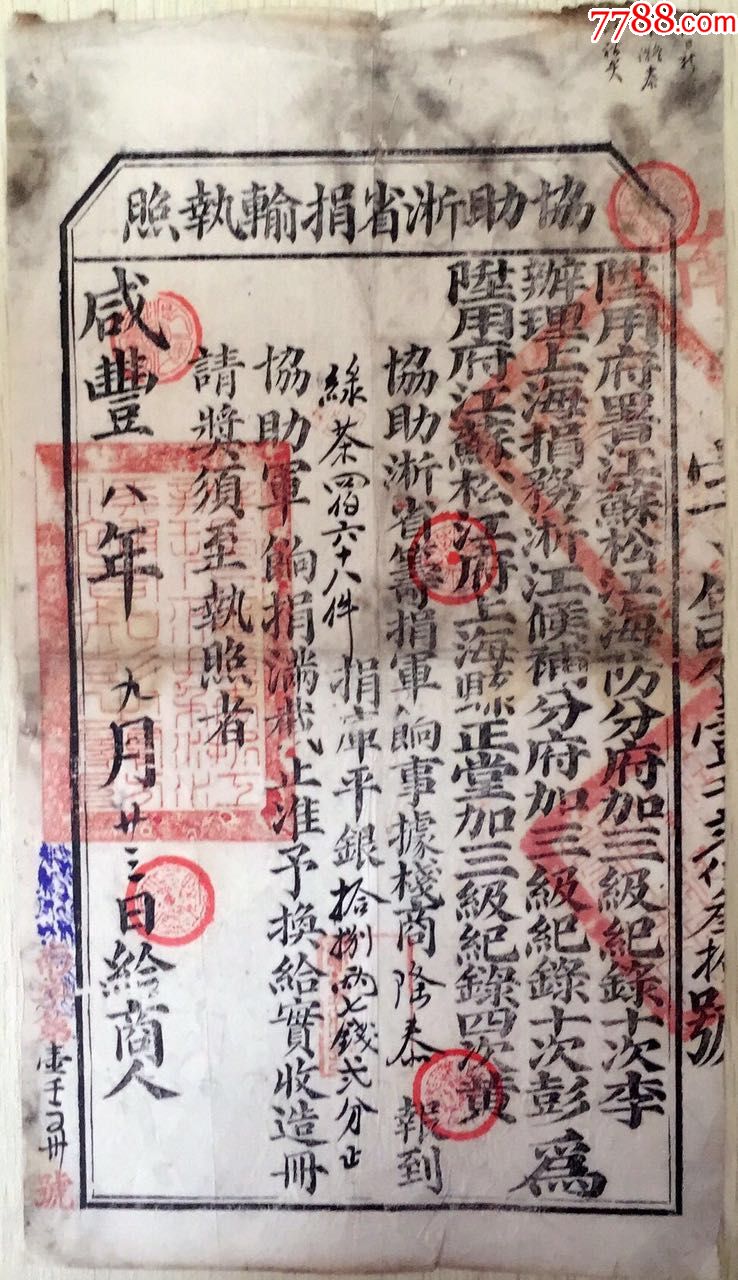 7788.com
協助浙省捐輸執照
陞用府署江蘇松江海防分府加三級紀錄十次李
辦理上海捐務浙江候補分府加三級紀錄十次彭 為
陞用府江蘇松江府上海縣正堂加三級紀錄四次黃
協助浙省籌捐軍餉事據棧商隆泰報到
綠茶四佰六十八件 捐庫平銀拾捌兩七錢弍分正
協助軍餉捐滿截止准予換給實收造冊
請獎須至執照者
咸豐八年九月廿三日給商人
號
號